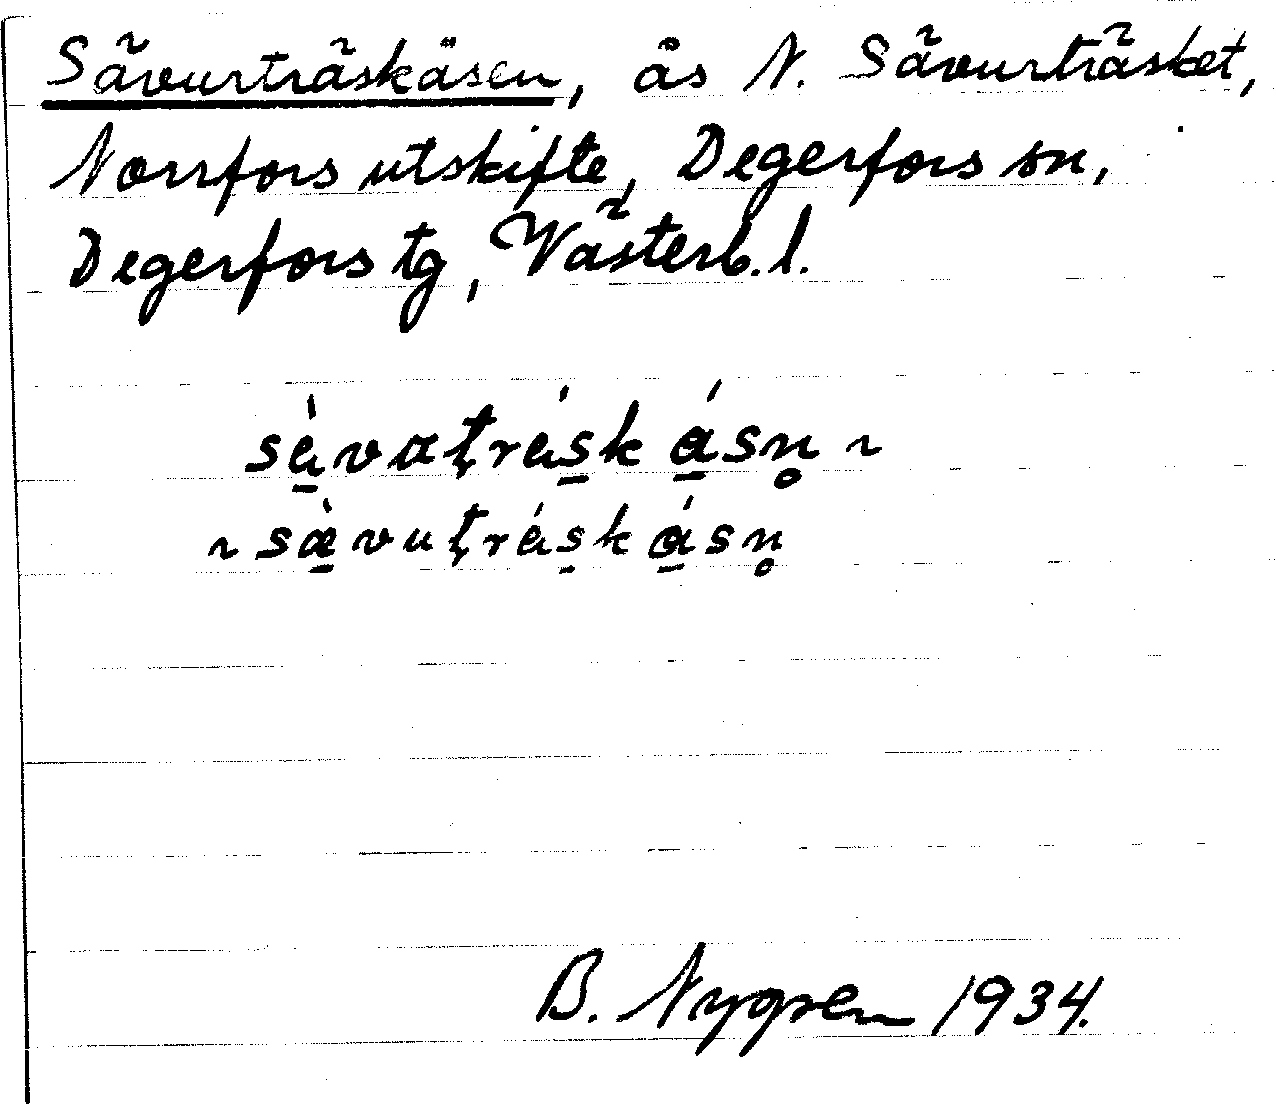 Sävurträskåsen, ås N. Sävurträsket,
Norrfors utskifte, Degerfors sn,
Degerfors tg, Västerb. l.
sä̀vaţrásk ǻsn̥ ~
~ sæ̀vuţrásk ǻsn̥
B. Nygren 1934.